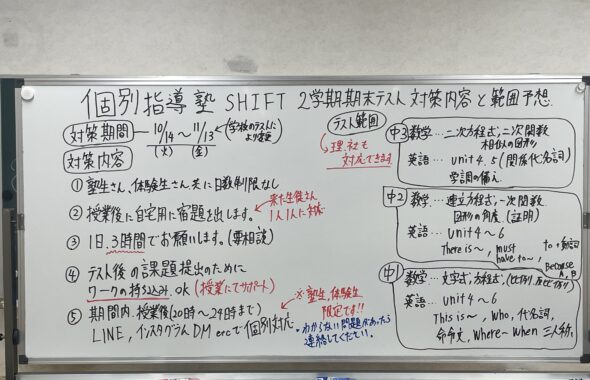 個別指導塾 SHIFT 2学期期末テスト 対策内容と範囲予想
対策期間 10/14〜11/13
(火) (金)
(学校のテストに
より変更)
対策内容
① 塾生さん、体験生さん共に日数制限なし
② 授業後に自宅用に宿題を出します。
来た生徒さん
1人1人に対応
③ 1日、3時間でお願いします。(要相談)
④ テスト後の課題提出のために
ワークの持ち込み、OK (授業にてサポート)
⑤ 期間内、授業後(20時〜24時まで)
LINE、インスタグラムDM ercで個別対応
※塾生、体験生
限定です!!
わからない問題があったら
連絡してください。
テスト範囲
理、社も
対応できます
中3 数学…二次方程式,二次関数
相似の図形
英語…unit 4.5 (関係代名詞)
学調の備え
中2 数学…連立方程式,一次関数
図形の角度(証明)
英語…unit 4〜6
There is〜, must
have to〜,
to+動詞
Because
A, B
中1 数学…文字式,方程式,(比例,反比例)
英語…unit 4〜6
This is〜, Who, 代名詞,
命令文, Where〜 When 三人称,